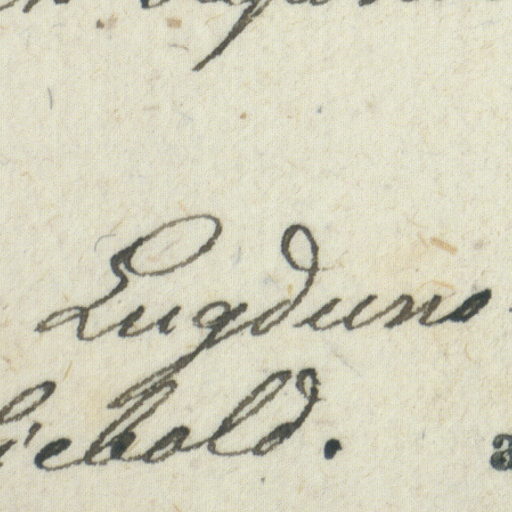 Lugduno-
Siebold.